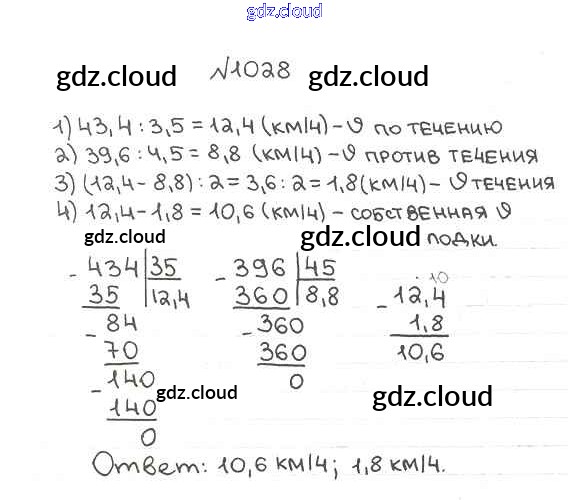 gdz.cloud
№1028
gdz.cloud gdz.cloud
1) 43,4 : 3,5 = 12,4 (км/ч) - υ по течению
2) 39,6 : 4,5 = 8,8 (км/ч) - υ против течения
3) (12,4 - 8,8) : 2 = 3,6 : 2 = 1,8 (км/ч) - υ течения
4) 12,4 - 1,8 = 10,6 (км/ч) - собственная υ
gdz.cloud gdz.cloud лодки.
- 434 | 35 - 396 | 45 10
35 12,4 360 8,8 - 12,4
- 84 - 360 1,8
70 360 10,6
- 140 0
140 gdz.cloud gdz.cloud
0
Ответ: 10,6 км/ч; 1,8 км/ч.
gdz.cloud